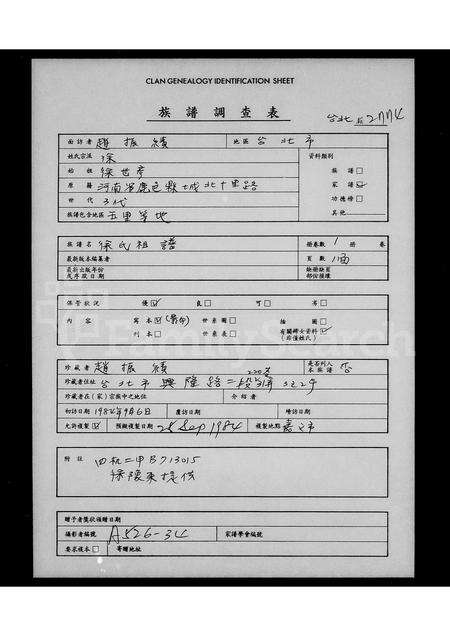 CLAN GENEALOGY IDENTIFICATION SHEET
族譜調查表
台北 2774
面訪者 趙振績 地區 台北市
姓氏宗派 徐 資料類別
始祖 徐世彥 族譜□
原籍 河南省鹿邑縣城北十里路 家譜☑
世代 3代 功德榜□
族譜包含地區 五里等地 其他
族譜名 徐氏祖譜 冊卷數 1 冊 卷
最新版本編纂者 頁數
最新出版年份及序跋日期 缺冊缺頁部份種類
保管狀況 優☑ 良□ 可□ 劣□
內容 寫本☑ 世系圖□ 插圖□
刊本□ 世系表□ 有關婦女資料☑ (非僅姓氏)
珍藏者 趙振績 是否列入本族譜 否
珍藏者住址 台北市興隆路二段220巷
珍藏者在(家)宗族中之地位 介紹者
初訪日期 1984年9月6日 覆訪日期 峰訪日期
允許複製☑ 預擬複製日期 25 Sep 1984 複製地點 嘉义市
附註 四机二甲B713015
徐懷東提供
贈予者獎狀頒贈日期
攝影者編號 A526-34 家譜學會編號
要求複本□ 寄贈地址
FamilySearch